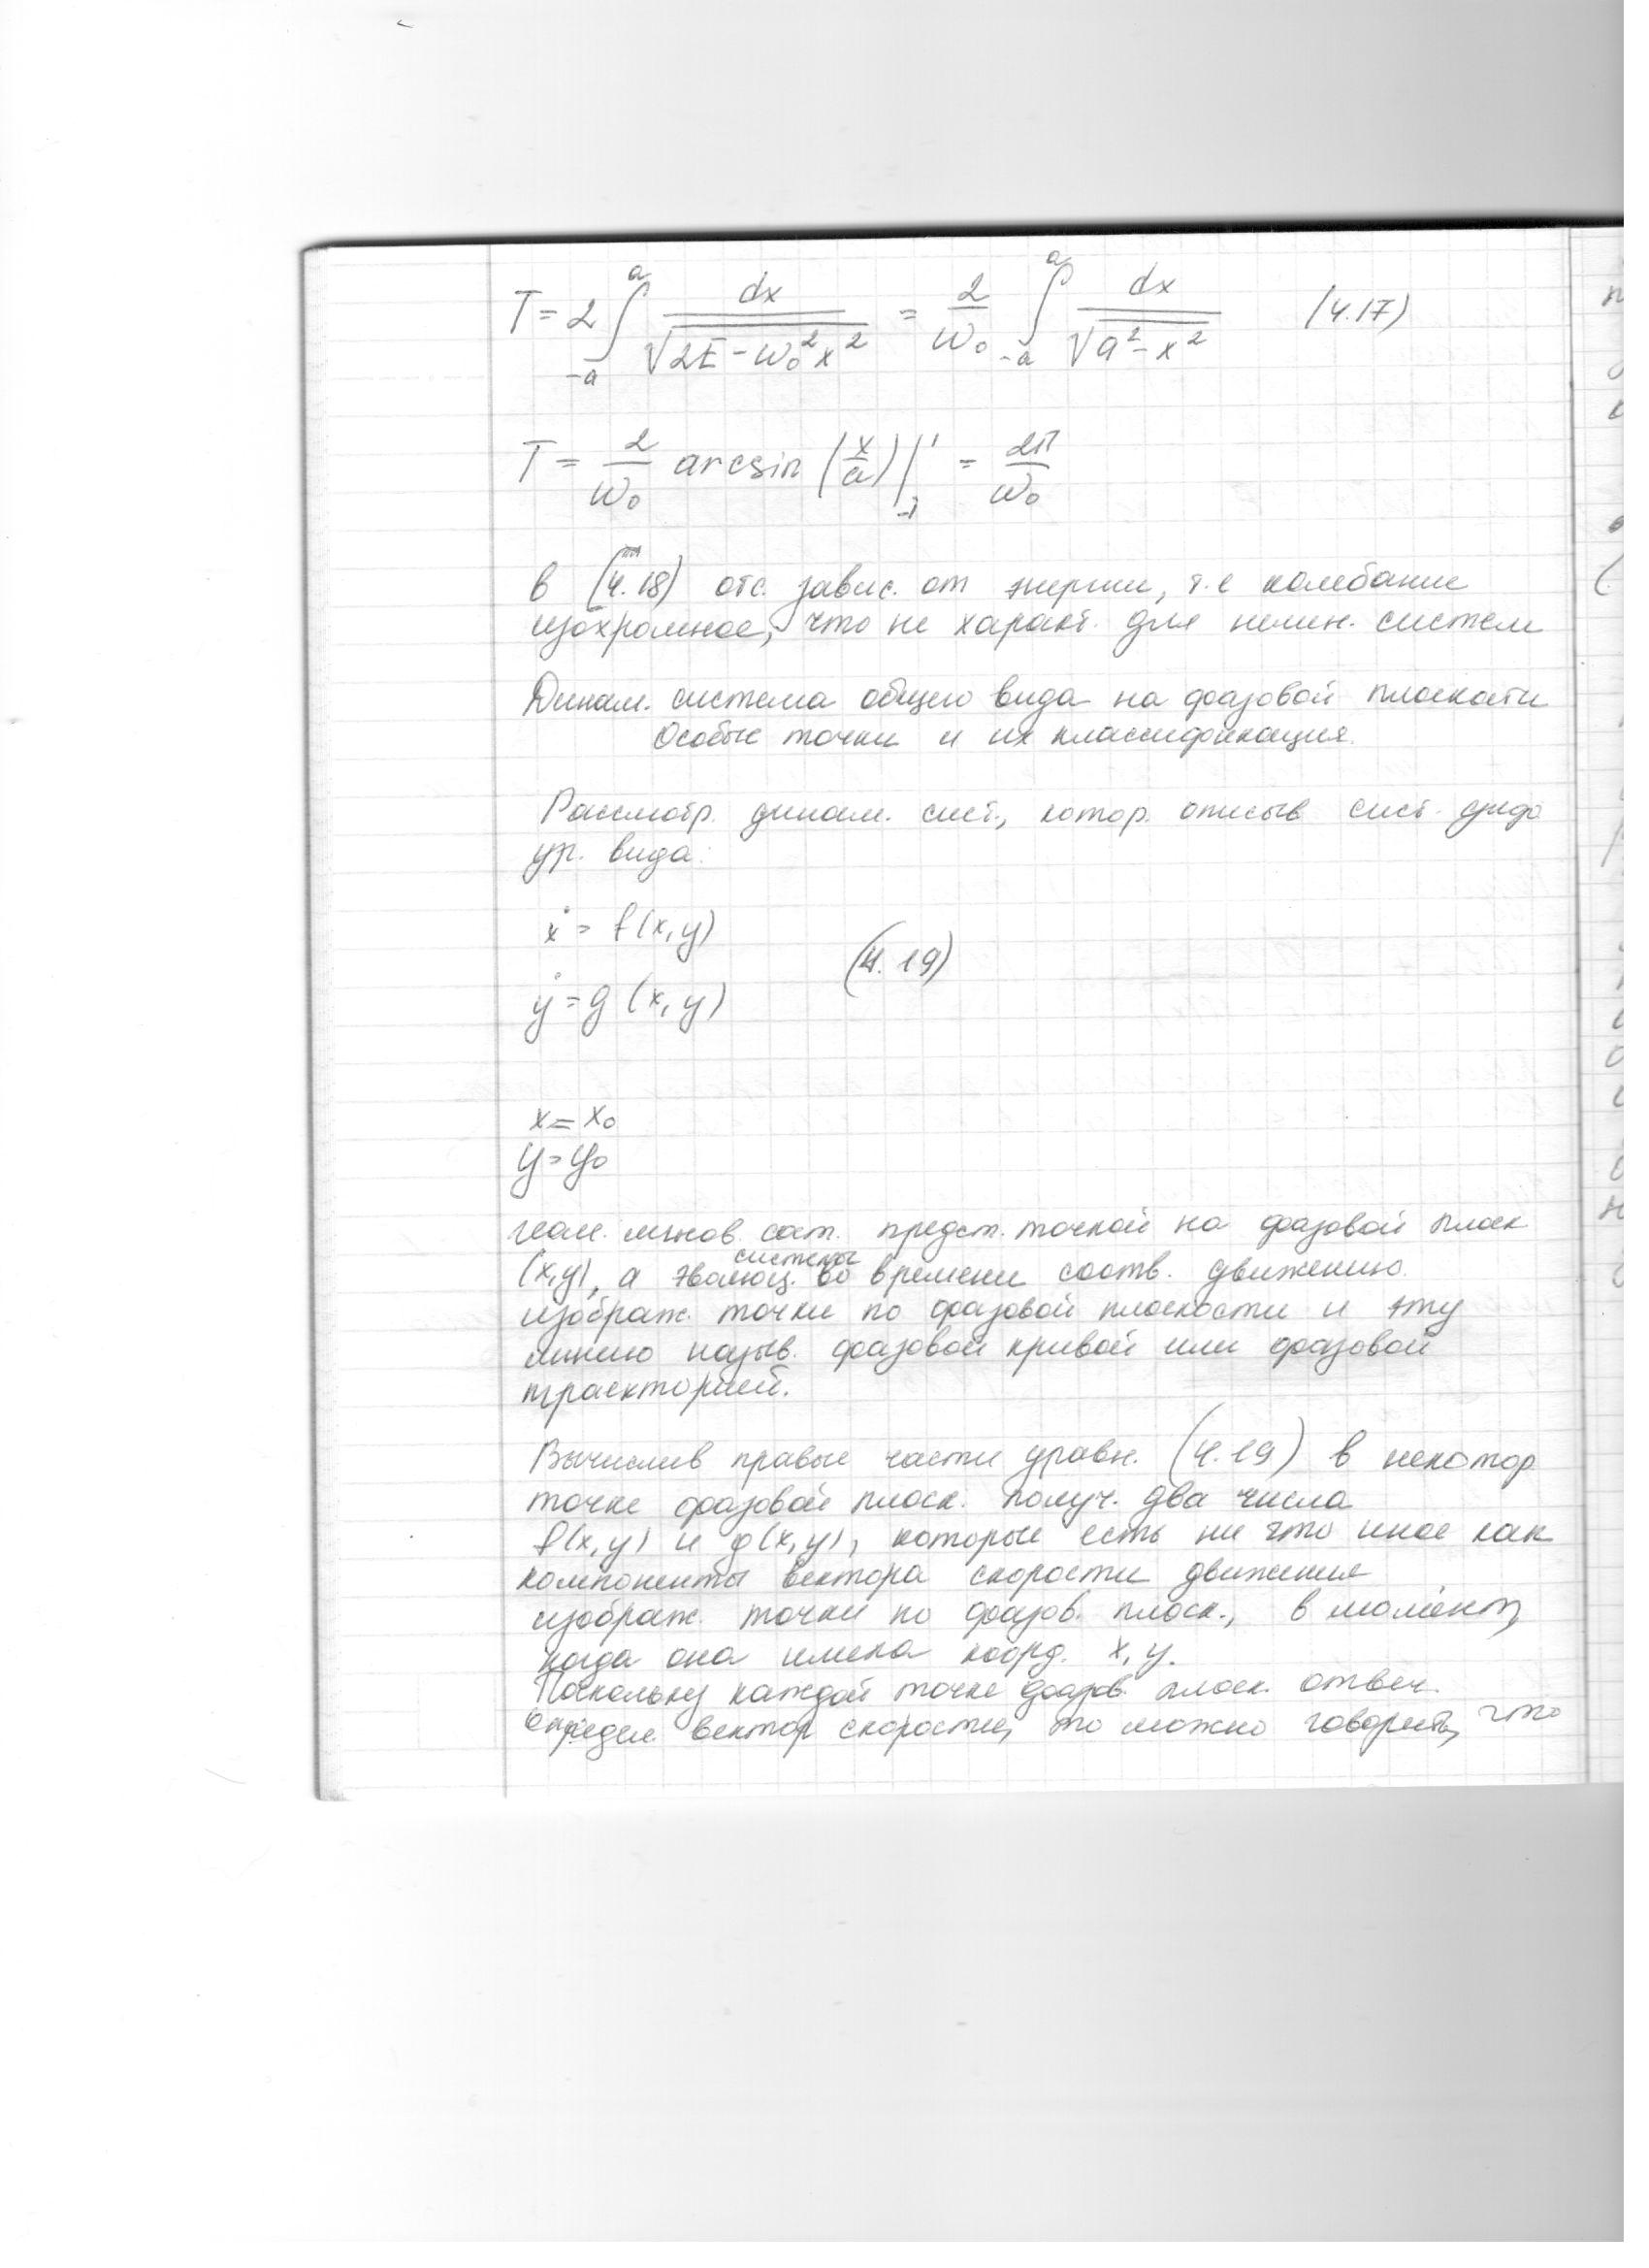 T = 2 ∫_{-a}^{a} dx / √(2E - ω₀²x²) = 2/ω₀ ∫_{-a}^{a} dx / √(a² - x²) (4.17)
T = 2/ω₀ arcsin (x/a) |_{-1}^{1} = 2π/ω₀
в (4.18) отс. завис. от энергии, т.е колебание
изохронное, что не характ. для нелин. систем
Динам. система общего вида на фазовой плоскости
Особые точки и их классификация.
Рассмотр. динам. сист., котор. описыв сист. дифф
ур. вида:
ẋ = f(x,y)
(4.19)
ẏ = g(x,y)
x = x₀
y = y₀
геом. мгнов. сост. предст. точкой на фазовой плоск
(x,y), а эволюц. системы во времени соотв. движению
изображ. точки по фазовой плоскости и эту
линию назыв. фазовой кривой или фазовой
траекторией.
Вычислив правые части уравн. (4.19) в некотор
точке фазовой плоск. получ. два числа
f(x,y) и g(x,y), которые есть ни что иное как
компоненты вектора скорости движения
изображ. точки по фазов. плоск., в момент,
когда она имела коорд. x, y.
Поскольку каждой точке фазов. плоск. отвеч.
определ. вектор скорости, то можно говорить, что